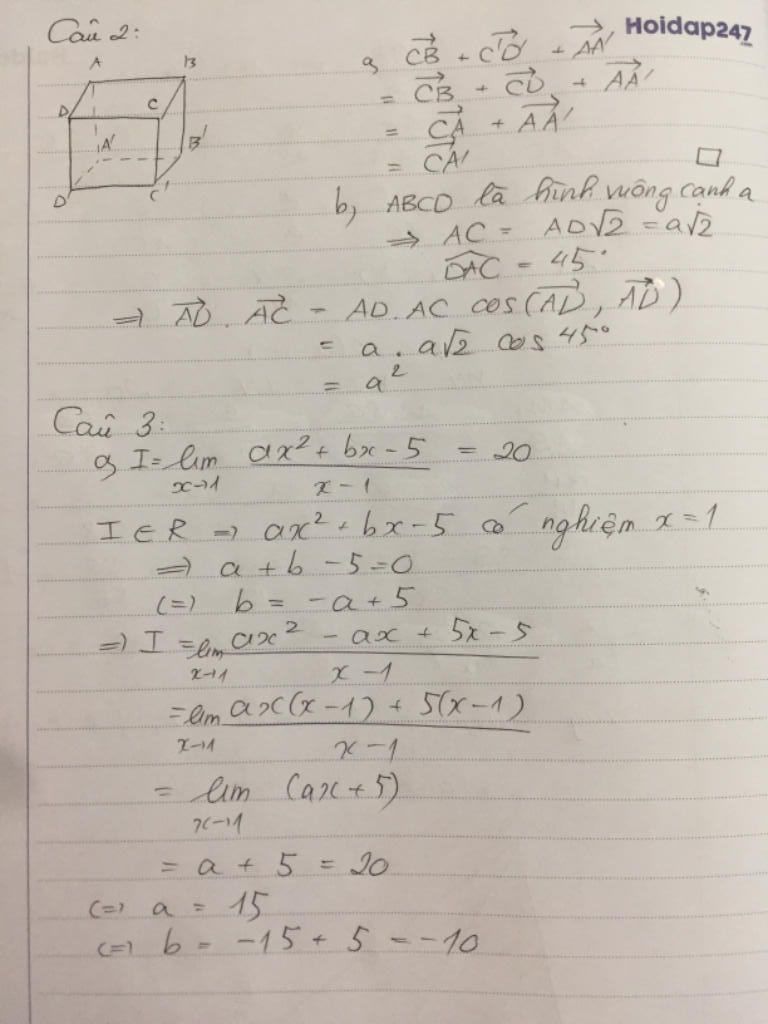 Câu 2:
Hoidap247
.com
A
B
D
C
A'
B'
D'
C'
a, CB→ + C'D'→ + AA'→
= CB→ + CD→ + AA'→
= CA→ + AA'→
= CA'→ □
b, ABCD là hình vuông cạnh a
⇒ AC = AD√2 = a√2
DAC^ = 45°
⇒ AD→ . AC→ = AD.AC cos(AD→, AD→)
= a . a√2 cos 45°
= a²
Câu 3:
a, I = lim x→1 (ax² + bx - 5)/(x - 1) = 20
I ∈ R ⇒ ax² + bx - 5 có nghiệm x = 1
⇒ a + b - 5 = 0
(=) b = -a + 5
⇒ I = lim x→1 (ax² - ax + 5x - 5)/(x - 1)
= lim x→1 (ax(x - 1) + 5(x - 1))/(x - 1)
= lim x→1 (ax + 5)
= a + 5 = 20
(=) a = 15
(=) b = -15 + 5 = -10